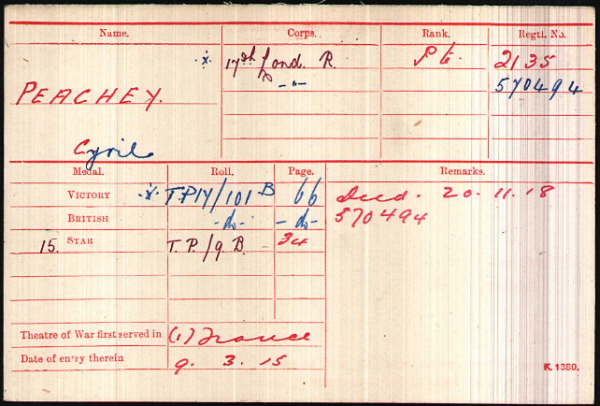 Name. Corps. Rank. Regtl. No.
x. 17th Lond R. Pte. 2135
-"- 570494
PEACHEY.
Cyril
Medal. Roll. Page. Remarks.
VICTORY x. T.P.14/101 B 66 Died. 20.11.18
BRITISH -do- -do- 570494
15. STAR T.P./9 B. 34
Theatre of War first served in (1) France
Date of entry therein 9. 3. 15
K 1380.